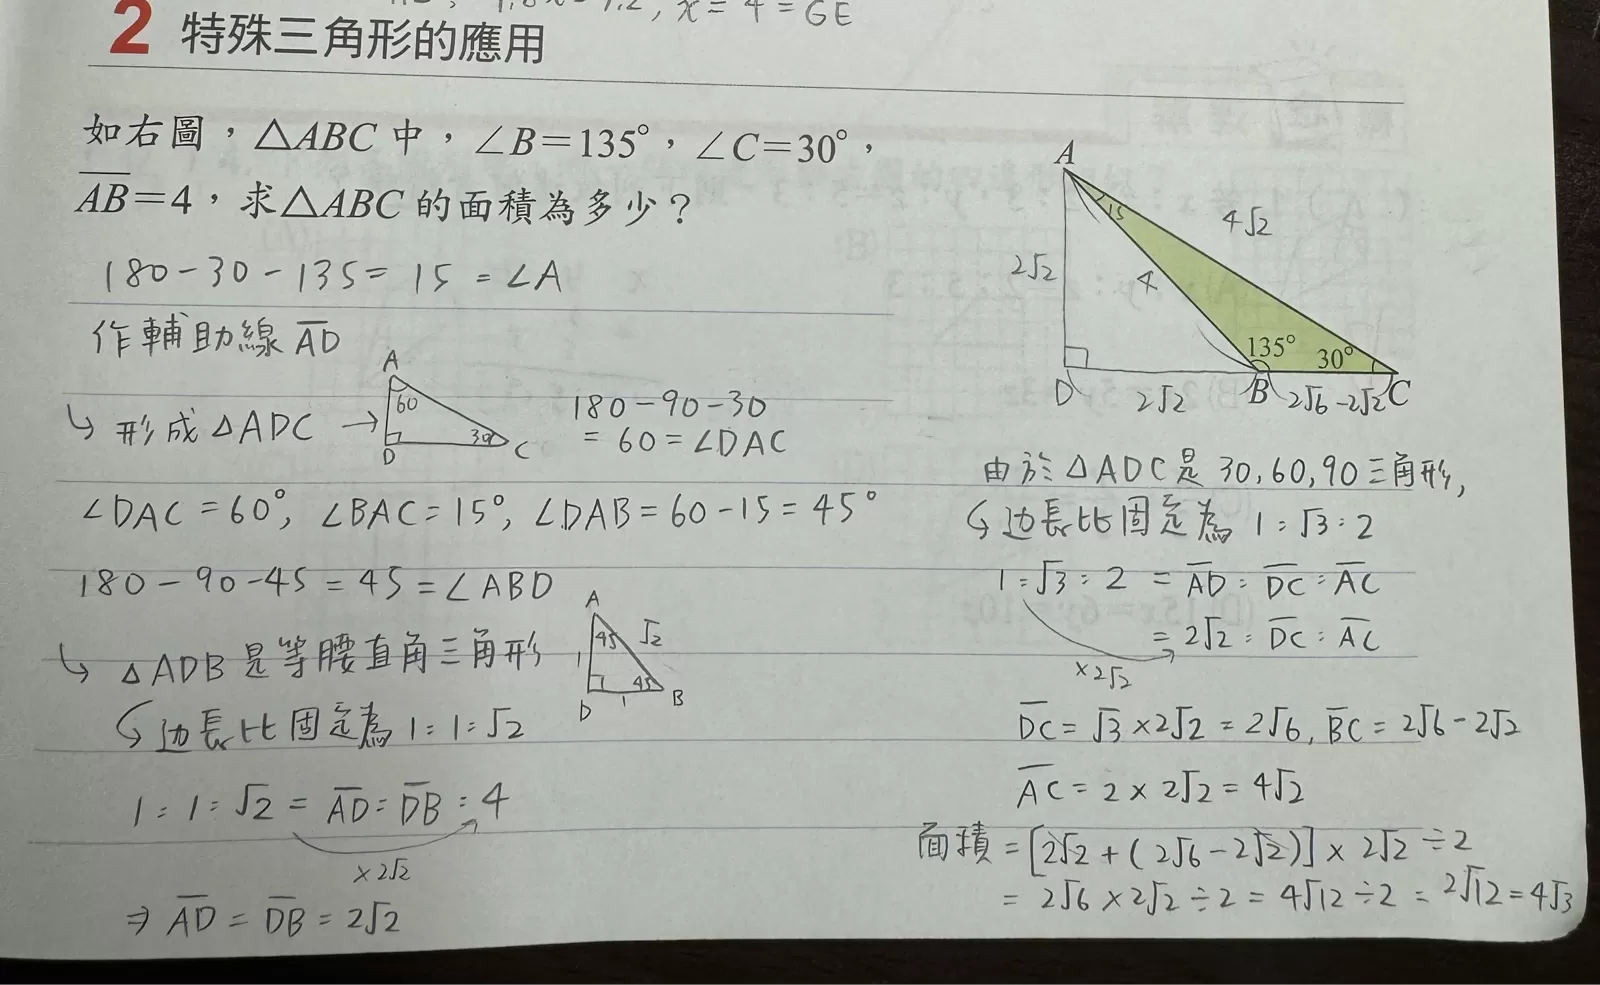 x = 4 = GE
2 特殊三角形的應用
如右圖，△ABC 中，∠B＝135°，∠C＝30°，
AB＝4，求△ABC 的面積為多少？
180-30-135= 15 = ∠A
作輔助線 AD
↳ 形成 △ADC →
A
60
30
D
C
180-90-30
= 60 = ∠DAC
∠DAC = 60°, ∠BAC = 15°, ∠DAB = 60-15 = 45°
180-90-45 = 45 = ∠ABD
↳ △ADB 是等腰直角三角形
A
45
√2
1
45
D
1
B
↳ 边長比固定為 1:1:√2
1:1:√2 = AD:DB:4
×2√2
⇒ AD = DB = 2√2
A
15
4√2
2√2
4
135°
30°
D
2√2
B
2√6-2√2
C
由於 △ADC 是 30, 60, 90 三角形,
↳ 边長比固定為 1:√3:2
1:√3:2 = AD:DC:AC
= 2√2:DC:AC
×2√2
DC = √3×2√2 = 2√6, BC = 2√6-2√2
AC = 2×2√2 = 4√2
面積 = [2√2+(2√6-2√2)]×2√2÷2
= 2√6×2√2÷2 = 4√12÷2 = 2√12 = 4√3